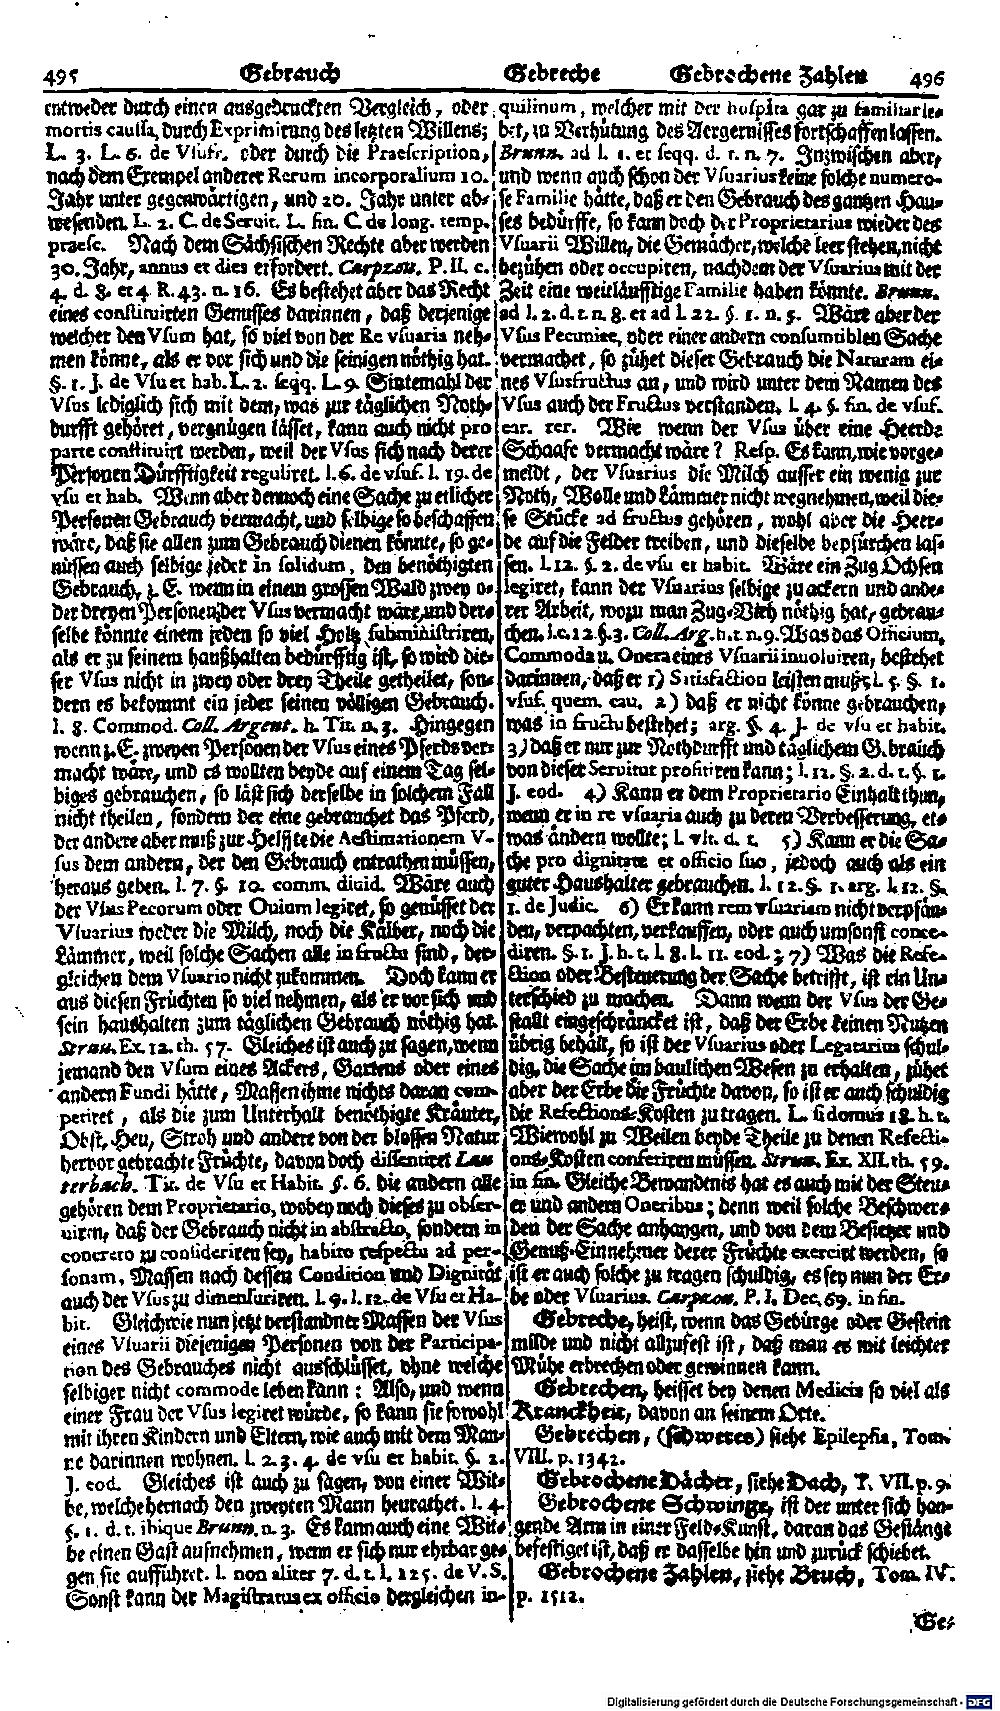 495 Gebrauch
Gebreche Gebrochene Zahlen 496
entweder durch einen ausgedruckten Vergleich, oder
mortis caussa, durch Exprimirung des letzten Willens;
L. 3. L. 6. de Vsufr. oder durch die Praescription,
nach dem Exempel anderer Rerum incorporalium 10.
Jahr unter gegenwärtigen, und 20. Jahr unter ab-
wesenden. L. 2. C. de Seruit. L. fin. C. de long. temp.
praesc. Nach dem Sächsischen Rechte aber werden
30. Jahr, annus et dies erfordert. Carpzou. P. II. c.
4. d. 8. et 4 R. 43. n. 16. Es bestehet aber das Recht
eines constituirten Genusses darinnen, daß derjenige
welcher den Vsum hat, so viel von der Re vsuaria neh-
men könne, als er vor sich und die seinigen nöthig hat.
§. 1. J. de Vsu et hab. L. 2. seqq. L. 9. Sintemahl der
Vsus lediglich sich mit dem, was zur täglichen Noth-
durfft gehöret, vergnügen lässet, kann auch nicht pro
parte constituirt werden, weil der Vsus sich nach derer
Personen Dürfftigkeit reguliret. l. 6. de vsuf. l. 19. de
vsu et hab. Wenn aber dennoch eine Sache zu etlicher
Personen Gebrauch vermacht, und selbige so beschaffen
wäre, daß sie allen zum Gebrauch dienen könnte, so ge-
nüssen auch selbige jeder in solidum, den benöthigten
Gebrauch, z. E. wenn in einem grossen Wald zwey o-
der dreyen Personen der Vsus vermacht wäre, und der-
selbe könnte einem jeden so viel Holtz subministriren,
als er zu seinem haußhalten bedürfftig ist, so wird die-
ser Vsus nicht in zwey oder drey Theile getheilet, son-
dern es bekommt ein jeder seinen völligen Gebrauch.
l. 8. Commod. Coll. Argent. h. Tit. n. 3. Hingegen
wenn z. E. zweyen Personen der Vsus eines Pferds ver-
macht wäre, und es wollten beyde auf einem Tag sel-
biges gebrauchen, so läst sich derselbe in solchem Fall
nicht theilen, sondern der eine gebrauchet das Pferd,
der andere aber muß zur Helffte die Aestimationem V-
sus dem andern, der den Gebrauch entrathen müssen,
heraus geben. l. 7. §. 10. comm. diuid. Wäre auch
der Vsus Pecorum oder Ouium legiret, so genüsset der
Vsuarius weder die Milch, noch die Kälber, noch die
Lämmer, weil solche Sachen alle in fructu sind, der-
gleichen dem Vsuario nicht zukommen. Doch kann er
aus diesen Früchten so viel nehmen, als er vor sich und
sein haushalten zum täglichen Gebrauch nöthig hat.
Struu. Ex. 12. th. 57. Gleiches ist auch zu sagen, wenn
jemand den Vsum eines Ackers, Gartens oder eines
andern Fundi hätte, Massen ihme nichts daran com-
periret, als die zum Unterhalt benöthigte Kräuter,
Obst, Heu, Stroh und andere von der blossen Natur
hervor gebrachte Früchte, davon doch dissentiret Lau
terbach. Tit. de Vsu et Habit. §. 6. die andern alle
gehören dem Proprietario, wobey noch dieses zu obser-
uiren, daß der Gebrauch nicht in abstracto, sondern in
concreto zu consideriren sey, habito respectu ad per-
sonam, Massen nach dessen Condition und Dignität
auch der Vsus zu dimensuriren. l. 9. l. 12. de Vsu et Ha-
bit. Gleichwie nun jetzt verstandner Massen der Vsus
eines Vsuarii diejenigen Personen von der Participa-
tion des Gebrauches nicht ausschlüsset, ohne welche
selbiger nicht commode leben kann: Also, und wenn
einer Frau der Vsus legiret würde, so kann sie sowohl
mit ihren Kindern und Eltern, wie auch mit dem Man-
ne darinnen wohnen. l. 2. 3. 4. de vsu et habit. §. 2.
J. eod. Gleiches ist auch zu sagen, von einer Wit-
be, welche hernach den zweyten Mann heurathet. l. 4.
§. 1. d. t. ibique Brunn. n. 3. Es kann auch eine Wit-
be einen Gast aufnehmen, wenn er sich nur ehrbar ge-
gen sie aufführet. l. non aliter 7. d. t. l. 125. de V. S.
Sonst kann der Magistratus ex officio dergleichen in-
quilinum, welcher mit der hospita gar zu familiarie-
bet, zu Verhütung des Aergernisses fortschaffen lassen.
Brunn. ad l. 1. et seqq. d. t. n. 7. Inzwischen aber,
und wenn auch schon der Vsuarius keine solche numero-
se Familie hätte, daß er den Gebrauch des gantzen Hau-
ses bedürffe, so kann doch der Proprietarius wieder des
Vsuarii Willen, die Gemächer, welche leer stehen, nicht
bezühen oder occupiren, nachdem der Vsuarius mit der
Zeit eine weitläufftige Familie haben könnte. Brunn.
ad l. 2. d. t. n. 8. et ad l. 22. §. 1. n. 5. Wäre aber der
Vsus Pecuniae, oder einer andern consumiblen Sache
vermachet, so zühet dieser Gebrauch die Naturam ei-
nes Vsusfructus an, und wird unter dem Namen des
Vsus auch der Fructus verstanden. l. 4. §. fin. de vsuf.
ear. rer. Wie wenn der Vsus über eine Heerde
Schaafe vermacht wäre? Resp. Es kann, wie vorge-
meldt, der Vsuarius die Milch ausser ein wenig zur
Noth, Wolle und Lämmer nicht wegnehmen, weil die-
se Stücke ad fructus gehören, wohl aber die Heer-
de auf die Felder treiben, und dieselbe bepfürchen las-
sen. l. 12. §. 2. de vsu et habit. Wäre ein Zug Ochsen
legiret, kann der Vsuarius selbige zu ackern und ande-
rer Arbeit, wozu man Zug-Vieh nöthig hat, gebrau-
chen. l. c. 12. §. 3. Coll. Arg. h. t. n. 9. Was das Officium,
Commoda u. Onera eines Vsuarii inuoluiren, bestehet
darinnen, daß er 1) Satisfaction leisten muß; l. 5. §. 1.
vsuf. quem. cau. 2) daß er nicht könne gebrauchen,
was in fructu bestehet; arg. §. 4. J. de vsu et habit.
3) daß er nur zur Nothdurfft und täglichem Gebrauch
von dieser Seruitut profitiren kann; l. 12. §. 2. d. t. §. 1.
J. eod. 4) Kann er dem Proprietario Einhalt thun,
wenn er in re vsuaria auch zu deren Verbesserung, et-
was ändern wollte; l. vlt. d. t. 5) Kann er die Sa-
che pro dignitate et officio suo, jedoch auch als ein
guter Haushalter gebrauchen. l. 12. §. 1. arg. l. 12. §.
1. de Judic. 6) Er kann rem vsuariam nicht verpfän-
den, verpachten, verkauffen, oder auch umsonst conce-
diren. §. 1. J. h. t. l. 8. l. 11. eod.; 7) Was die Refe-
ction oder Besteuerung der Sache betrifft, ist ein Un-
terschied zu machen. Dann wenn der Vsus der Ge-
stallt eingeschräncket ist, daß der Erbe keinen Nutzen
übrig behält, so ist der Vsuarius oder Legatarius schul-
dig, die Sache im baulichen Wesen zu erhalten, zühet
aber der Erbe die Früchte davon, so ist er auch schuldig
die Refections-Kosten zu tragen. L. si domus 18. h. t.
Wiewohl zu Weilen beyde Theile zu denen Refecti-
ons-Kosten conferiren müssen. Struu. Ex. XII. th. 59.
in fin. Gleiche Bewandtnis hat es auch mit der Steu-
er und andern Oneribus; denn weil solche Beschwer-
den der Sache anhangen, und von dem Besitzer und
Genuß-Einnehmer derer Früchte exercirt werden, so
ist er auch solche zu tragen schuldig, es sey nun der Er-
be oder Vsuarius. Carpzou. P. I. Dec. 69. in fin.
Gebreche, heist, wenn das Gebürge oder Gestein
milde und nicht allzufest ist, daß man es mit leichter
Mühe erbrechen oder gewinnen kann.
Gebrechen, heisset bey denen Medicis so viel als
Kranckheit, davon an seinem Orte.
Gebrechen, (schweres) siehe Epilepsia, Tom.
VIII. p. 1342.
Gebrochene Dächer, siehe Dach, T. VII. p. 9.
Gebrochene Schwinge, ist der unter sich han-
gende Arm in einer Feld-Kunst, daran das Gestänge
befestiget ist, daß er dasselbe hin und zurück schiebet.
Gebrochene Zahlen, siehe Bruch, Tom. IV.
p. 1512.
Ge-
Digitalisierung gefördert durch die Deutsche Forschungsgemeinschaft - DFG